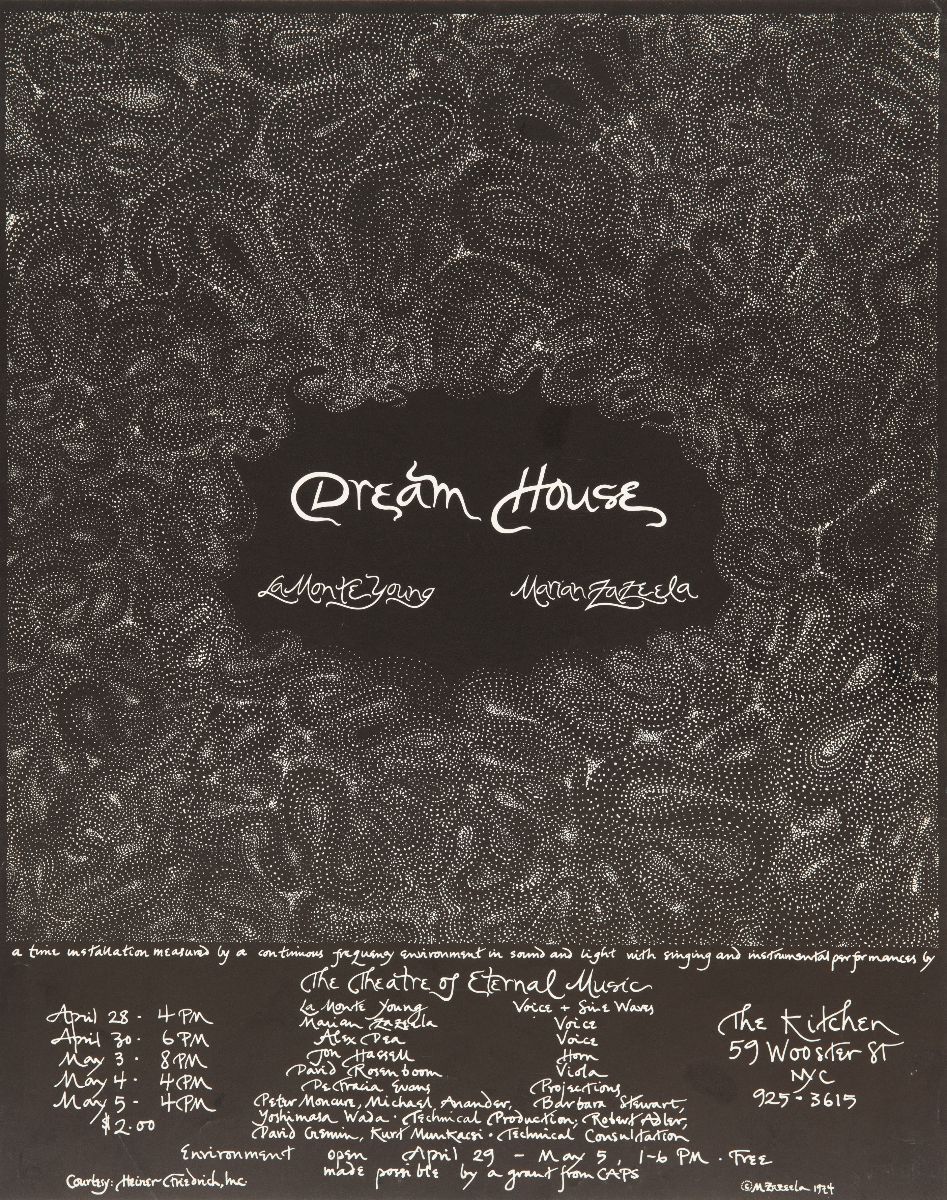 Dream House
La Monte Young Marian Zazeela
a time installation measured by a continuous frequency environment in sound and light with singing and instrumental performances by
The Theatre of Eternal Music
La Monte Young Voice + Sine Waves
Marian Zazeela Voice
Alex Dea Voice
Jon Hassell Horn
David Rosenboom Viola
DeTracia Evans Projections
Peter Moncure, Michael Anander, Barbara Stewart,
Yoshimasa Wada · Technical Production, Robert Adler,
David Gamin, Kurt Munkacsi · Technical Consultation
April 28 · 4 PM
April 30 · 6 PM
May 3 · 8 PM
May 4 · 4 PM
May 5 · 4 PM
$2.00
The Kitchen
59 Wooster St
NYC
925-3615
Environment open April 29 - May 5, 1-6 PM · Free
made possible by a grant from CAPS
Courtesy: Heiner Friedrich, Inc.
© M. Zazeela 1974